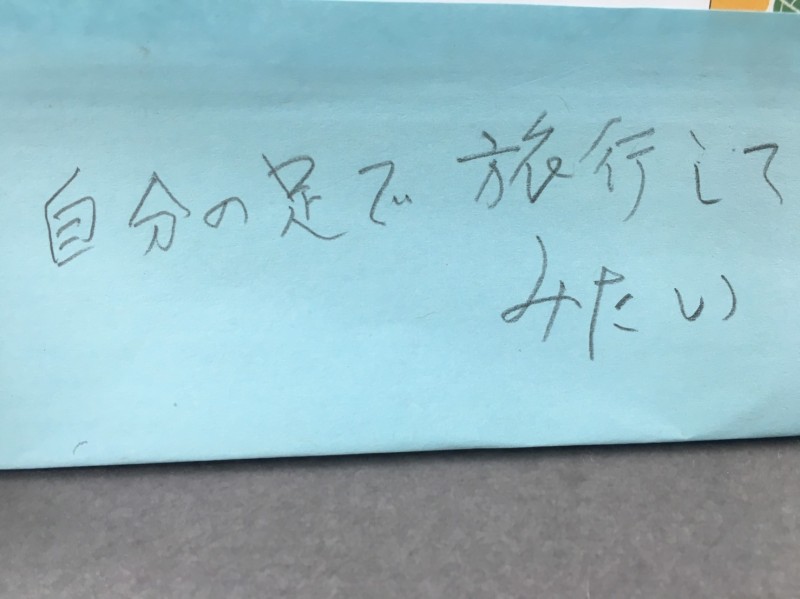 自分の足で旅行して
みたい